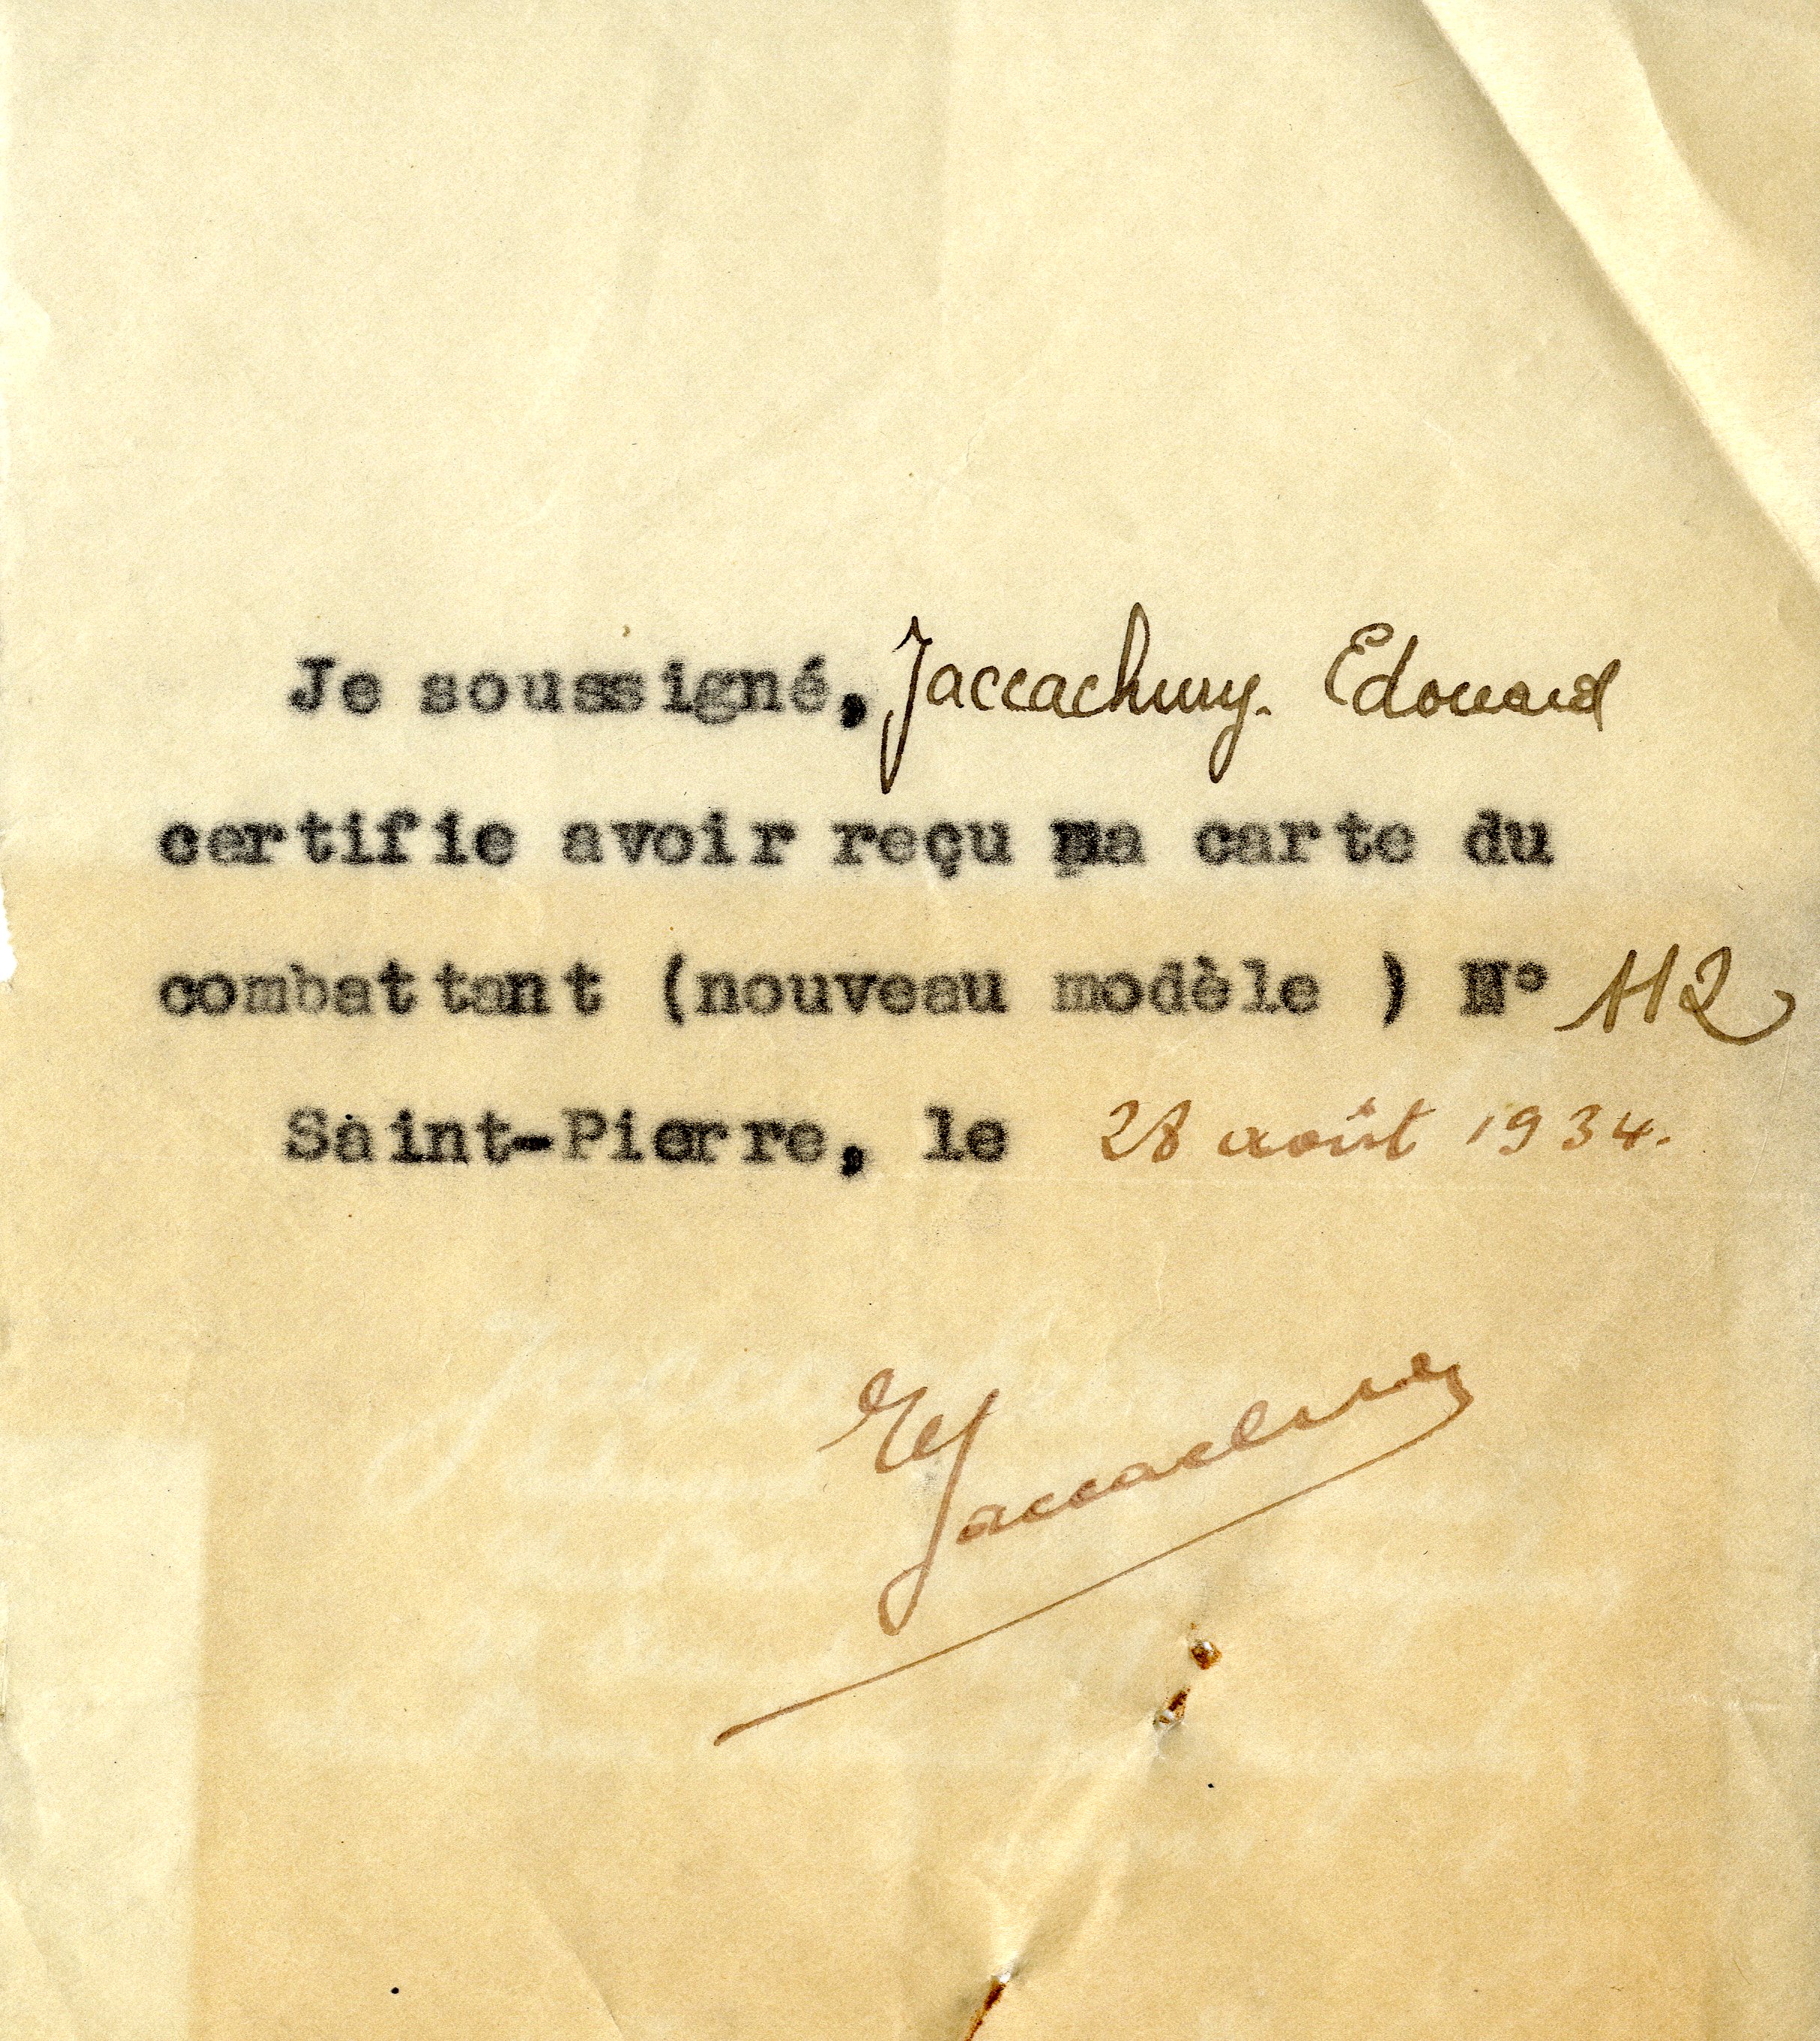 Je soussigné, Jaccachury. Edouard
certifie avoir reçu ma carte du
combattant (nouveau modèle ) N° 112
Saint-Pierre, le 28 août 1934.
Ed Jaccachury